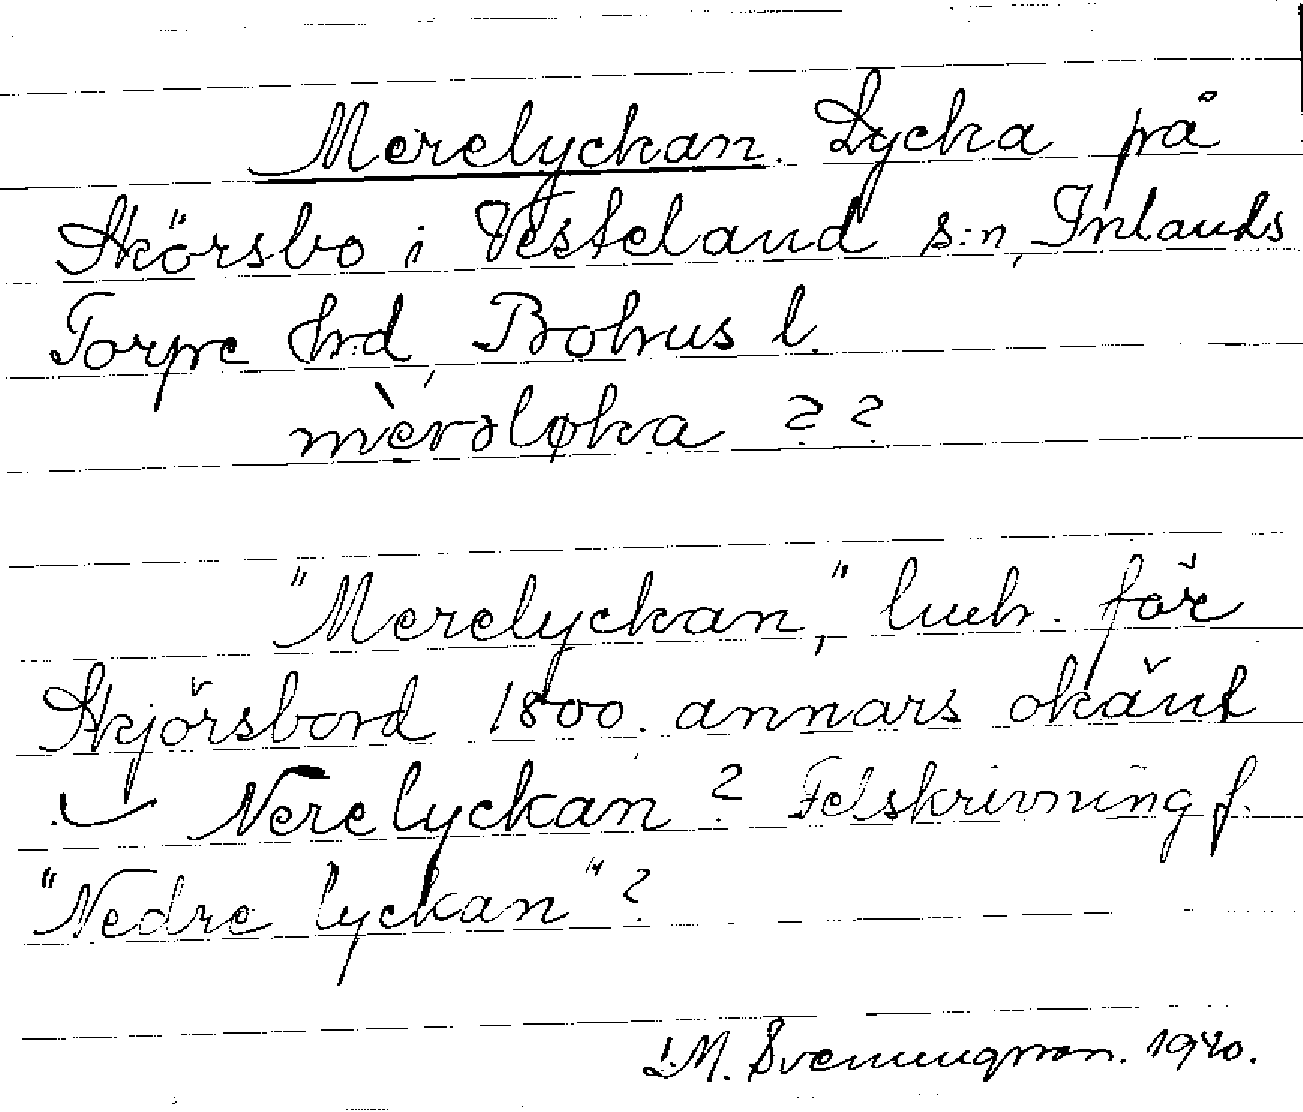 Merelyckan. Lycka på
Skörsbo i Vesteland s:n, Inlands
Torpe hrd, Bohus l.
mèrəløka ??
"Merelyckan," för
Skjörsbord 1800. annars okänt
Nerelyckan? Felskrivning f.
"Nedre lyckan"?
M. Svenungsson. 1940.